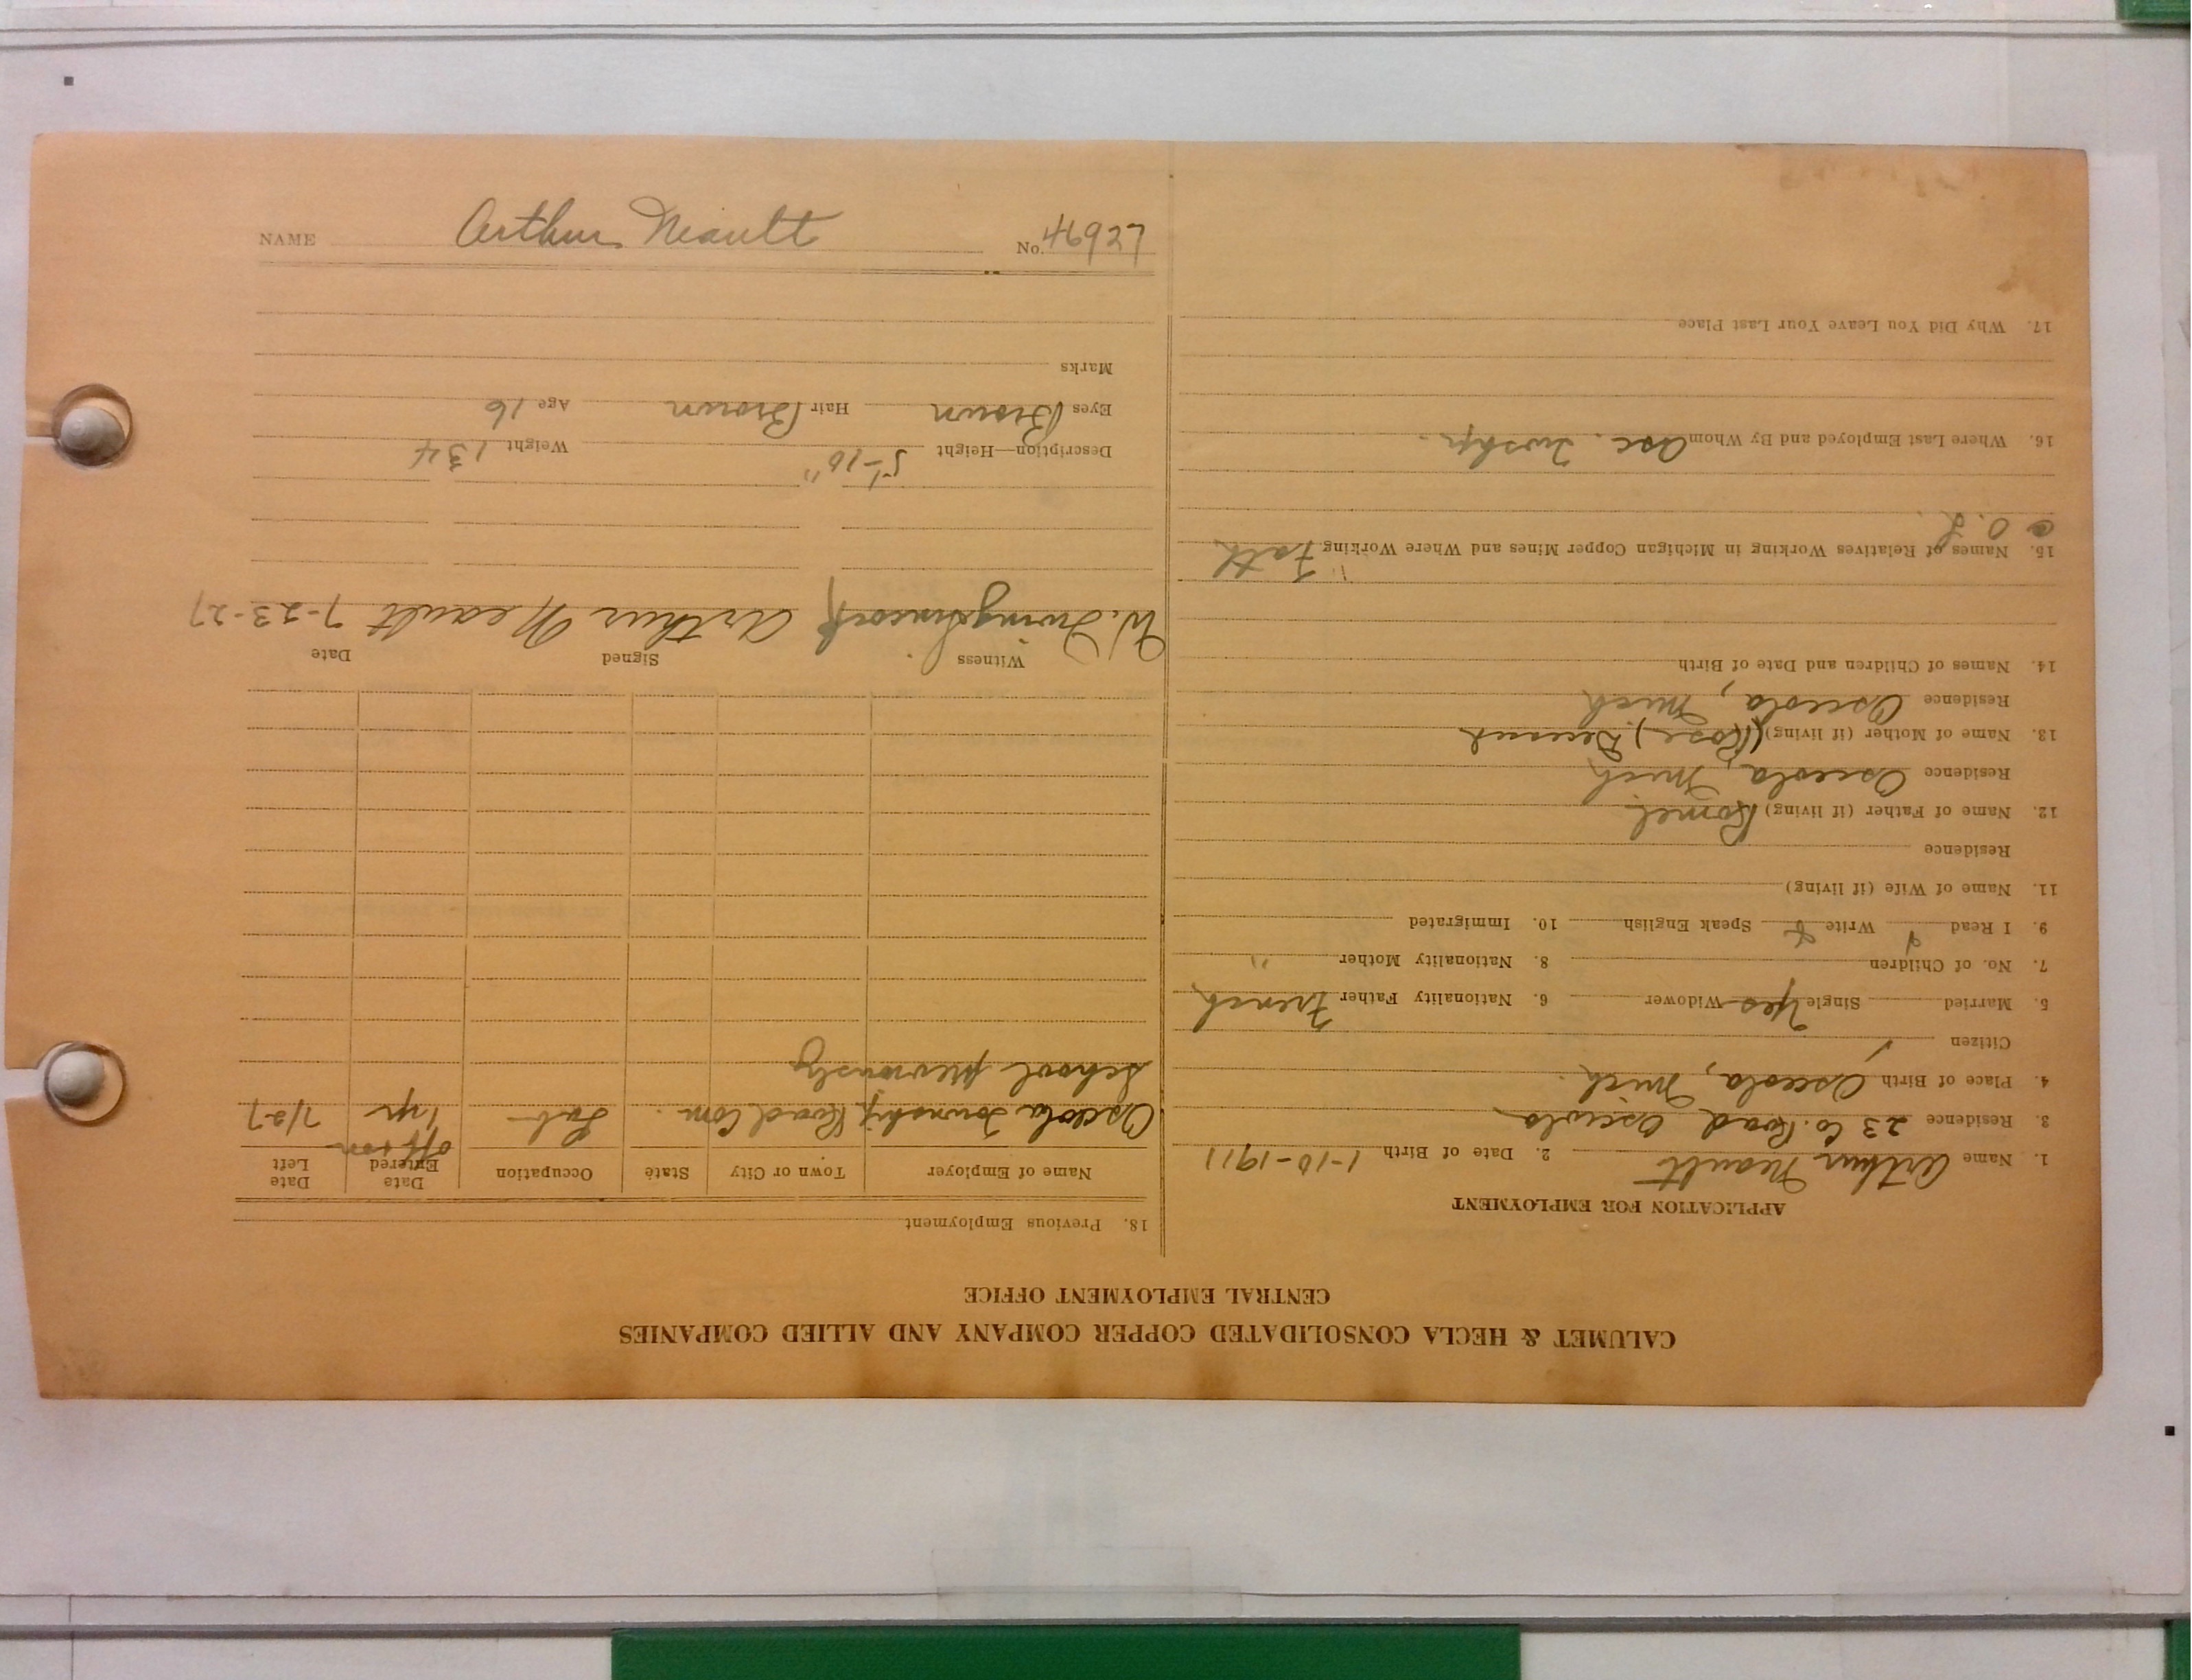 NAME Arthur Neault No. 46927
CALUMET & HECLA CONSOLIDATED COPPER COMPANY AND ALLIED COMPANIES
CENTRAL EMPLOYMENT OFFICE
APPLICATION FOR EMPLOYMENT
1. Name Arthur Neault 2. Date of Birth 1-10-1911
3. Residence 23 Co. Road Osceola
4. Place of Birth Osceola, Mich.
Citizen
5. Married Single Yes Widower 6. Nationality Father French
7. No. of Children 8. Nationality Mother "
9. I Read Write Speak English 10. Immigrated
11. Name of Wife (if living)
Residence
12. Name of Father (if living)
Residence Osceola, Mich
13. Name of Mother (if living) (Rose) Deceased
Residence Osceola, Mich
14. Names of Children and Date of Birth
15. Names of Relatives Working in Michigan Copper Mines and Where Working Fath
@ O. L.
16. Where Last Employed and By Whom Osc. Twshp.
17. Why Did You Leave Your Last Place
18. Previous Employment
Name of Employer Town or City State Occupation Date Entered Date Left
Osceola Township Road Com. Lab off + on 1 yr 7/27
School previously
Witness Signed Date
W. Irving Arthur Neault 7-23-27
Description—Height 5'-10" Weight 134
Eyes Brown Hair Brown Age 16
Marks